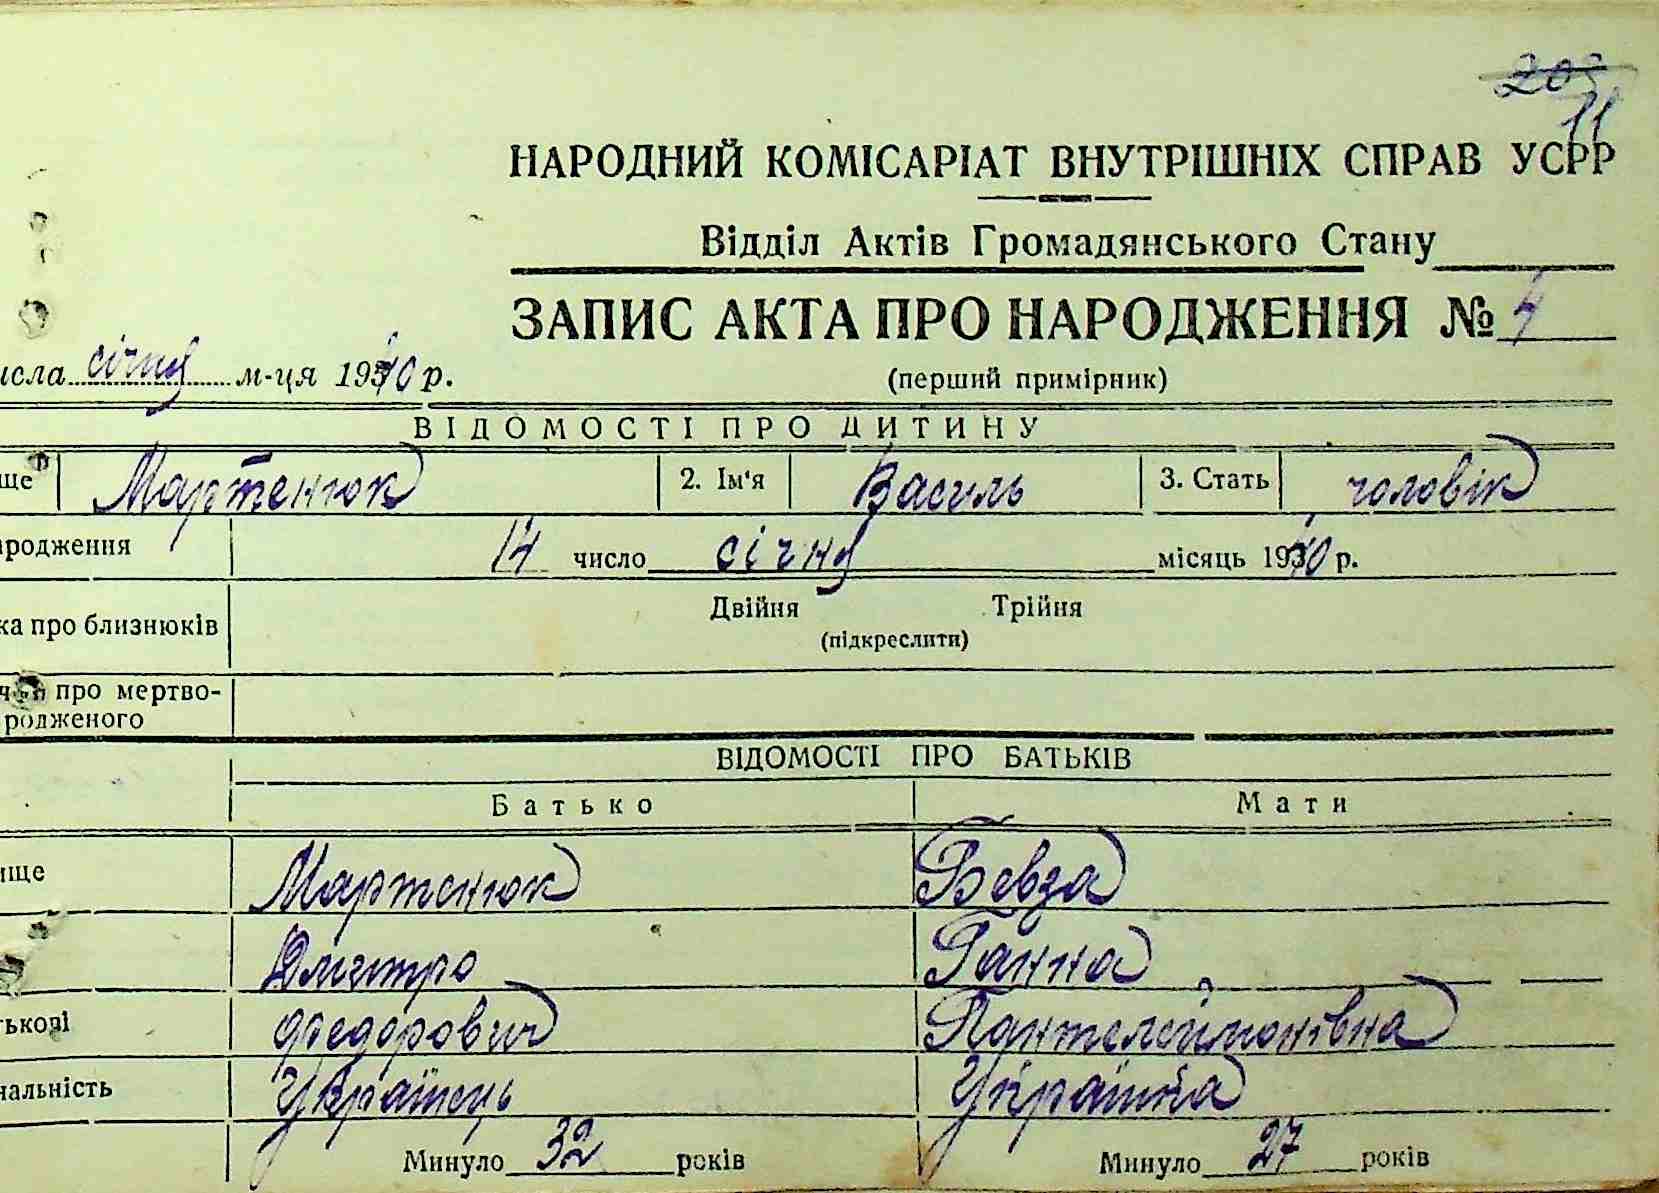 203
11
НАРОДНИЙ КОМІСАРІАТ ВНУТРІШНІХ СПРАВ УСРР
Відділ Актів Громадянського Стану
ЗАПИС АКТА ПРО НАРОДЖЕННЯ № 4
исла січня м-ця 1940 р.
(перший примірник)
ВІДОМОСТІ ПРО ДИТИНУ
ще Мартенюк 2. Ім'я Василь 3. Стать чоловік
ародження 14 число січня місяць 1940 р.
ка про близнюків Двійня Трійня
(підкреслити)
про мертво-
родженого
ВІДОМОСТІ ПРО БАТЬКІВ
Батько Мати
ище Мартенюк Бевза
Дмитро Ганна
ькові Федорович Пантелеймонівна
нальність Українець Українка
Минуло 32 років Минуло 27 років